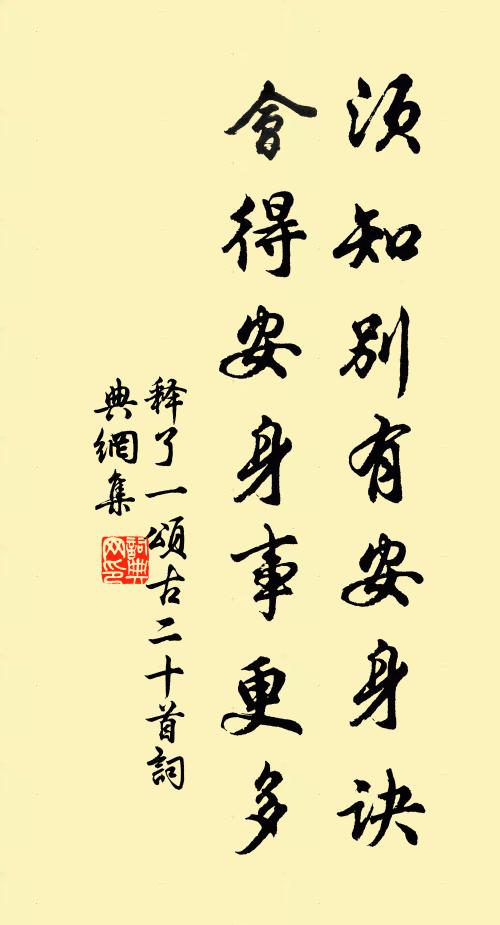 須知別有安身訣
會得安身事更多
释了一頌古二十首詞
典網集
詞典網印